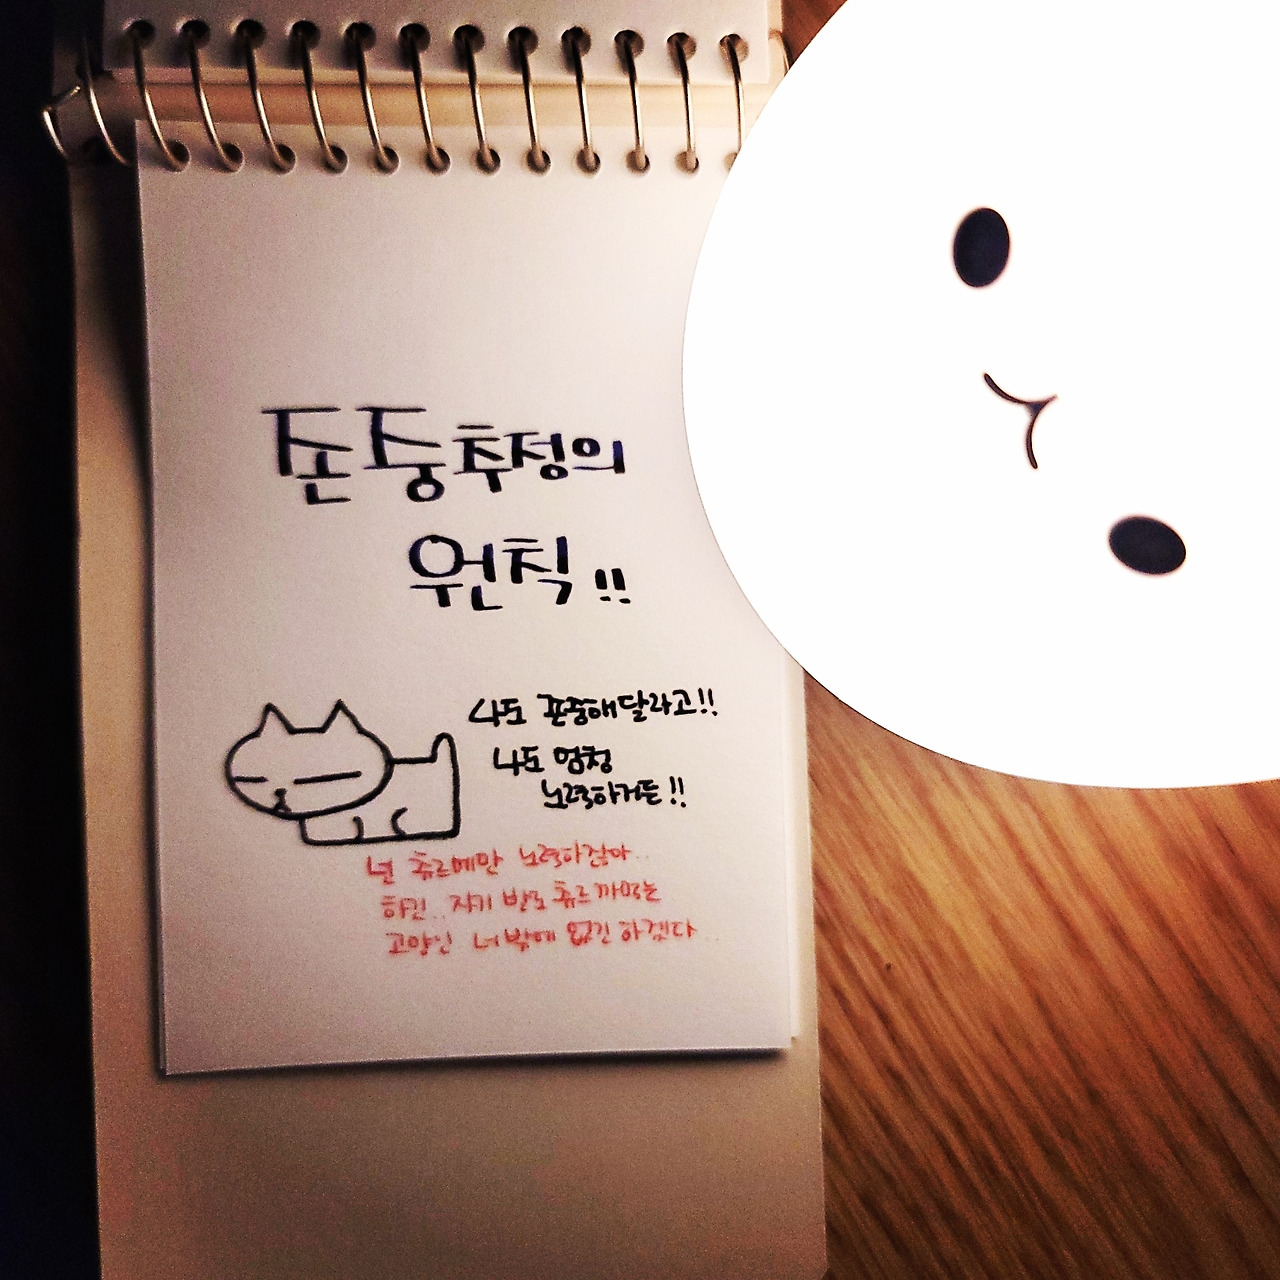 존중추정의
원칙!!
나도 존중해달라고!!
나도 엄청
노력하거든!!
넌 츄르에만 노력하잖아..
하긴.. 자기 발로 츄르 까먹는
고양인 너밖에 없긴 하겠다..